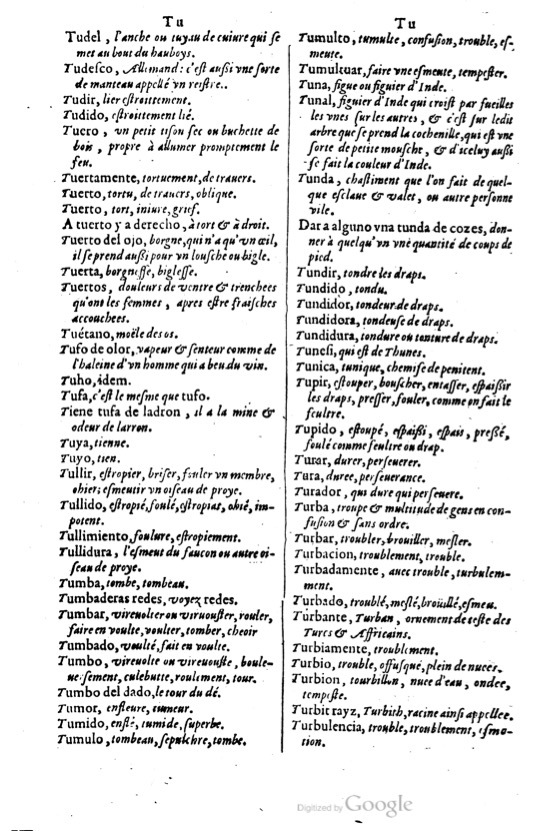 Tu
Tudel, l'anche ou tuyau de cuiure qui se
met au bout du hauboys.
Tudesco, Allemand: c'est außi vne sorte
de manteau appellé vn reistre..
Tudir, lier estroittement.
Tudido, estroittement lié.
Tuero, vn petit tison sec ou buchette de
bois, propre à allumer promptement le
feu.
Tuertamente, tortuement, de trauers.
Tuerto, tortu, de trauers, oblique.
Tuerto, tort, iniure, grief.
A tuerto y a derecho, à tort & à droit.
Tuerto del ojo, borgne, qui n'a qu'vn œil,
il se prend außi pour vn lousche ou bigle.
Tuerta, borgnesse, biglesse.
Tuertos, douleurs de ventre & trenchees
qu'ont les femmes, apres estre fraisches
accouchees.
Tuétano, moële des os.
Tufo de olor, vapeur & senteur comme de
l'haleine d'vn homme qui a beu du vin.
Tuho, idem.
Tufa, c'est le mesme que tufo.
Tiene tufa de ladron, il a la mine &
odeur de larron.
Tuya, tienne.
Tuyo, tien.
Tullir, estropier, briser, fouler vn membre,
ohier; esmeutir vn oiseau de proye.
Tullido, estropié, foulé, estropias, ohié, im-
potent.
Tullimiento, foulure, estropiement.
Tullidura, l'esment du faucon ou autre oi-
seau de proye.
Tumba, tombe, tombeau.
Tumbaderas redes, voyez redes.
Tumbar, vireuolter ou viruouster, rouler,
faire en voulte, voulter, tomber, cheoir
Tumbado, voulté, fait en voulte.
Tumbo, vireuolte ou vireuouste, boule-
uersement, culebutte, roulement, tour.
Tumbo del dado, le tour du dé.
Tumor, enfleure, tumeur.
Tumido, enflé, tumide, superbe.
Tumulo, tombeau, sepulchre, tombe.
Tu
Tumulto, tumulte, confusion, trouble, es-
meute.
Tumultuar, faire vne esmeute, tempester.
Tuna, figue ou figuier d'Inde.
Tunal, figuier d'Inde qui croist par fueilles
les vnes sur les autres, & c'est sur ledit
arbre que se prend la cochenille, qui est vne
sorte de petite mousche, & d'iceluy außi
se fait la couleur d'Inde.
Tunda, chastiment que l'on fait de quel-
que esclaue & valet, ou autre personne
vile.
Dar a alguno vna tunda de cozes, don-
ner à quelqu'vn vne quantité de coups de
pied.
Tundir, tondre les draps.
Tundido, tondu.
Tundidor, tondeur de draps.
Tundidora, tondeuse de draps.
Tundidura, tondure ou tonture de draps.
Tunesi, qui est de Thunes.
Tunica, tunique, chemise de penitent.
Tupir, estouper, bouscher, entasser, espaißir
les draps, presser, fouler, comme on fait le
feultre.
Tupido, estoupé, espaißi, espais, preßé,
foulé comme feultre ou drap.
Turar, durer, perseuerer.
Tura, duree, perseuerance.
Turador, qui dure qui perseuere.
Turba, troupe & multitude de gens en con-
fusion & sans ordre.
Turbar, troubler, brouiller, mesler.
Turbacion, troublement, trouble.
Turbadamente, auec trouble, turbulem-
ment.
Turbado, troublé, meslé, brouillé, esmeu.
Turbante, Turban, ornement de teste des
Turcs & Affricains.
Turbiamente, troublement.
Turbio, trouble, offusqué, plein de nuees.
Turbion, tourbillon, nuee d'eau, ondee,
tempeste.
Turbit rayz, Turbith, racine ainsi appellee.
Turbulencia, trouble, troublement, esmo-
tion.
Digitized by Google